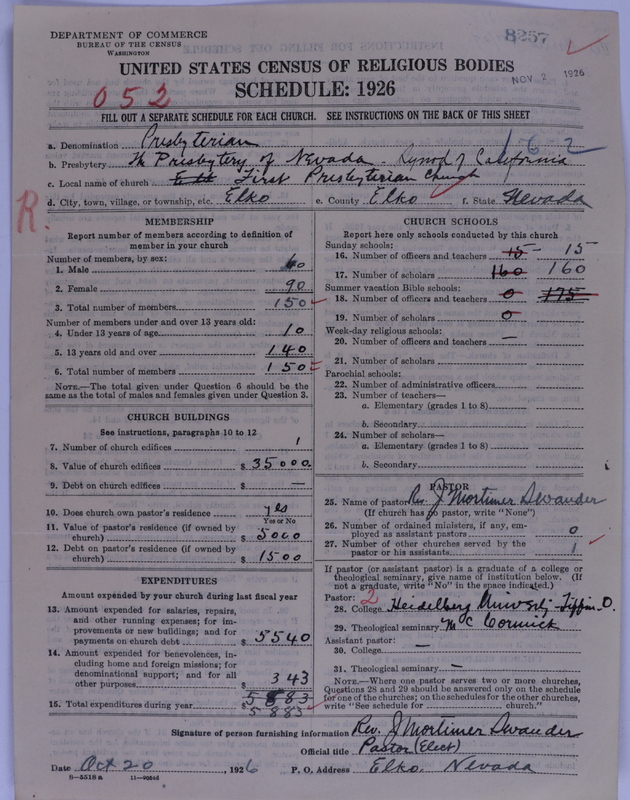 DEPARTMENT OF COMMERCE
BUREAU OF THE CENSUS
WASHINGTON
8257
UNITED STATES CENSUS OF RELIGIOUS BODIES
NOV 2 1926
SCHEDULE: 1926
052
FILL OUT A SEPARATE SCHEDULE FOR EACH CHURCH. SEE INSTRUCTIONS ON THE BACK OF THIS SHEET
a. Denomination Presbyterian 162
b. Presbytery The Presbytery of Nevada - Synod of California
c. Local name of church First Presbyterian Church
d. City, town, village, or township, etc. Elko e. County Elko f. State Nevada
R.
MEMBERSHIP
Report number of members according to definition of
member in your church
Number of members, by sex:
1. Male 60
2. Female 90
3. Total number of members 150
Number of members under and over 13 years old:
4. Under 13 years of age 10
5. 13 years old and over 140
6. Total number of members 150
NOTE.—The total given under Question 6 should be the
same as the total of males and females given under Question 3.
CHURCH BUILDINGS
See instructions, paragraphs 10 to 12
7. Number of church edifices 1
8. Value of church edifices $ 35000.
9. Debt on church edifices $ —
10. Does church own pastor's residence? yes
Yes or No
11. Value of pastor's residence (if owned by
church) $ 5000
12. Debt on pastor's residence (if owned by
church) $ 1500
EXPENDITURES
Amount expended by your church during last fiscal year
13. Amount expended for salaries, repairs,
and other running expenses; for im-
provements or new buildings; and for
payments on church debt $ 5540
14. Amount expended for benevolences, in-
cluding home and foreign missions; for
denominational support; and for all
other purposes $ 343
15. Total expenditures during year $ 5883
5883
CHURCH SCHOOLS
Report here only schools conducted by this church
Sunday schools:
16. Number of officers and teachers 15 15
17. Number of scholars 160 160
Summer vacation Bible schools:
18. Number of officers and teachers 0 175
19. Number of scholars 0
Week-day religious schools:
20. Number of officers and teachers —
21. Number of scholars
Parochial schools:
22. Number of administrative officers
23. Number of teachers—
a. Elementary (grades 1 to 8)
b. Secondary
24. Number of scholars—
a. Elementary (grades 1 to 8)
b. Secondary
PASTOR
25. Name of pastor Rev. J Mortimer Swander
(If church has no pastor, write "None")
26. Number of ordained ministers, if any, em-
ployed as assistant pastors 0
27. Number of other churches served by the
pastor or his assistants 1
If pastor (or assistant pastor) is a graduate of a college or
theological seminary, give name of institution below. (If
not a graduate, write "No" in the space indicated.)
Pastor: 2
28. College Heidelberg University Tiffin O.
29. Theological seminary McCormick
Assistant pastor:
30. College —
31. Theological seminary —
NOTE.—Where one pastor serves two or more churches,
Questions 28 and 29 should be answered only on the schedule
for one of the churches; on the schedules for the other churches,
write "See schedule for church."
Signature of person furnishing information Rev. J Mortimer Swander
Official title Pastor (Elect)
Date Oct 20, 1926 P. O. Address Elko, Nevada
8—5518 a